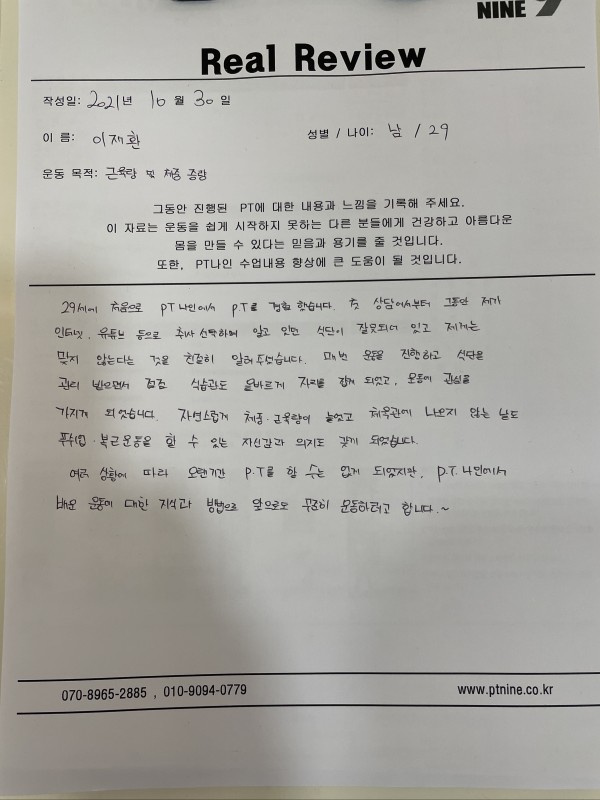 NINE 9
Real Review
작성일: 2021년 10월 30일
이 름: 이재환 성별 / 나이: 남 / 29
운동 목적: 근육량 및 체중 증량
그동안 진행된 PT에 대한 내용과 느낌을 기록해 주세요.
이 자료는 운동을 쉽게 시작하지 못하는 다른 분들에게 건강하고 아름다운
몸을 만들 수 있다는 믿음과 용기를 줄 것입니다.
또한, PT나인 수업내용 향상에 큰 도움이 될 것입니다.
29세에 처음으로 PT나인에서 P.T를 경험 했습니다. 첫 상담에서부터 그동안 제가
인터넷, 유튜브 등으로 하며 알고 있던 식단이 잘못되어 있고 제게는
맞지 않는다는 것을 친절히 알려주셨습니다. 매번 운동을 진행하고 식단을
관리 받으면서 점점 식습관도 올바르게 자리를 잡게 되었고, 운동에 관심을
가지게 되었습니다. 자연스럽게 체중·근육량이 늘었고 체육관에 나오지 않는 날도
푸쉬업·복근운동을 할 수 있는 자신감과 의지도 갖게 되었습니다.
여러 상황에 따라 오랜기간 P.T를 할 수는 없게 되었지만, P.T.나인에서
배운 운동에 대한 지식과 방법으로 앞으로도 꾸준히 운동하려고 합니다.~
070-8965-2885 , 010-9094-0779 www.ptnine.co.kr